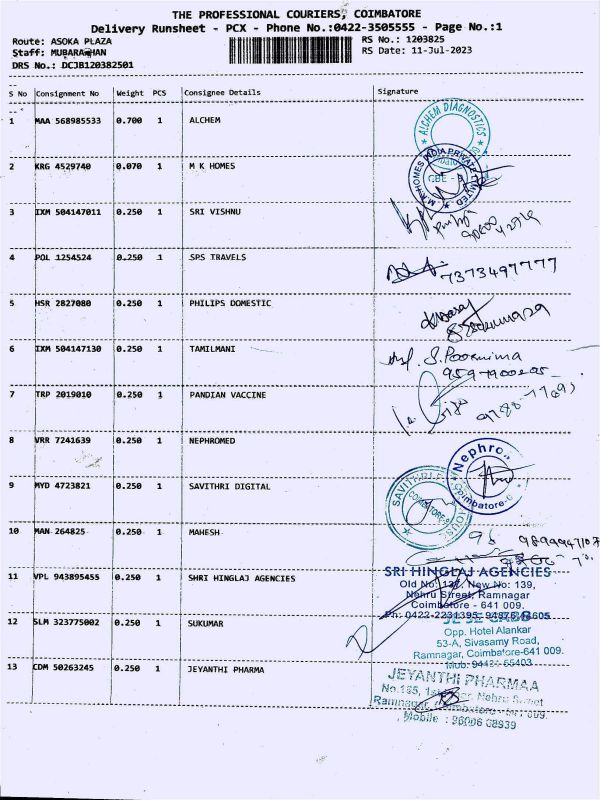 THE PROFESSIONAL COURIERS, COIMBATORE
Delivery Runsheet - PCX - Phone No.:0422-3505555 - Page No.:1
Route: ASOKA PLAZA
RS No.: 1203825
Staff: MUBARAKHAN
RS Date: 11-Jul-2023
DRS No.: DCJB120382501
S No Consignment No Weight PCS Consignee Details Signature
1 MAA 568985533 0.700 1 ALCHEM
ALCHEM DIAGNOSTICS
2 KRG 4529740 0.070 1 M K HOMES
M.K.HOMES INDIA PRIVATE LIMITED
CBE
3 IXM 504147011 0.250 1 SRI VISHNU
4 POL 1254524 0.250 1 SPS TRAVELS
7373497777
5 HSR 2827080 0.250 1 PHILIPS DOMESTIC
6 IXM 504147130 0.250 1 TAMILMANI
S. Poornima
7 TRP 2019010 0.250 1 PANDIAN VACCINE
8 VRR 7241639 0.250 1 NEPHROMED
Nephro
Coimbatore-
9 MYD 4723821 0.250 1 SAVITHRI DIGITAL
SAVITHRI HOUSE
COIMBATORE-9
10 MAN 264825 0.250 1 MAHESH
11 VPL 943895455 0.250 1 SHRI HINGLAJ AGENCIES
SRI HINGLAJ AGENCIES
Old No: 137, New No: 139,
Nehru Street, Ramnagar
Coimbatore - 641 009.
12 SLM 323775002 0.250 1 SUKUMAR
Opp. Hotel Alankar
53-A, Sivasamy Road,
Ramnagar, Coimbatore-641 009.
Mob: 94431 65403
13 CDM 50263245 0.250 1 JEYANTHI PHARMA
JEYANTHI PHARMAA
No.185, Nehru Street
Ramnagar, Coimbatore - 641 009.
Mobile : 96006 68939